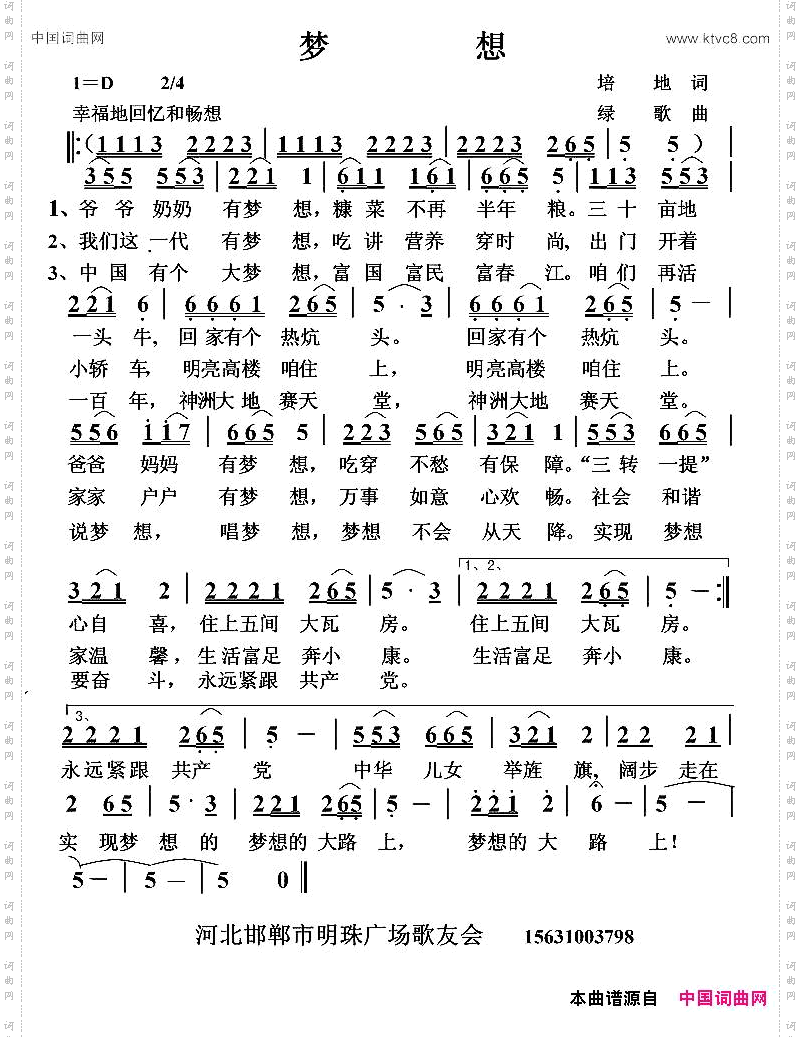 中国词曲网
梦 想
www.ktvc8.com
1=D 2/4
培 地 词
幸福地回忆和畅想
绿 歌 曲
‖:(1113 2223 | 1113 2223 | 2223 265 | 5 5 )|
355 553 | 221 1 | 611 161 | 665 5 | 113 553 |
1、爷 爷 奶奶 有梦 想，糠 菜 不再 半年 粮。三 十 亩地
2、我们这 一代 有梦 想，吃 讲 营养 穿时 尚, 出 门 开着
3、中 国 有个 大梦 想，富 国 富民 富春 江。咱 们 再活
221 6 | 6661 265 | 5 · 3 | 6661 265 | 5 － |
一头 牛, 回 家有个 热炕 头。 回家有个 热炕 头。
小轿 车, 明亮高楼 咱住 上， 明亮高楼 咱住 上。
一百 年，神洲大地 赛天 堂， 神洲大地 赛天 堂。
556 117 | 665 5 | 223 265 | 321 1 | 553 665 |
爸爸 妈妈 有梦 想，吃穿 不愁 有保 障。“三 转 一提”
家家 户户 有梦 想，万事 如意 心欢 畅。社会 和谐
说梦 想， 唱梦 想，梦想 不会 从天 降。实现 梦想
1、2、
321 2 | 2221 265 | 5 · 3 | 2221 265 | 5 － :‖
心自 喜，住上五间 大瓦 房。 住上五间 大瓦 房。
家温 馨，生活富足 奔小 康。 生活富足 奔小 康。
要奋 斗，永远紧跟 共产 党。
3、
2221 265 | 5 － | 553 665 | 5321 2 | 22 21 |
永远紧跟 共产 党 中华 儿女 举旌 旗，阔步 走在
2 65 | 5· 3 | 221 265 | 5 － | 221 2 | 6 － | 5 － |
实 现梦 想 的 梦想的 大路 上， 梦想的 大 路 上！
5 － | 5 － | 5 0 ‖
河北邯郸市明珠广场歌友会 15631003798
本曲谱源自 中国词曲网